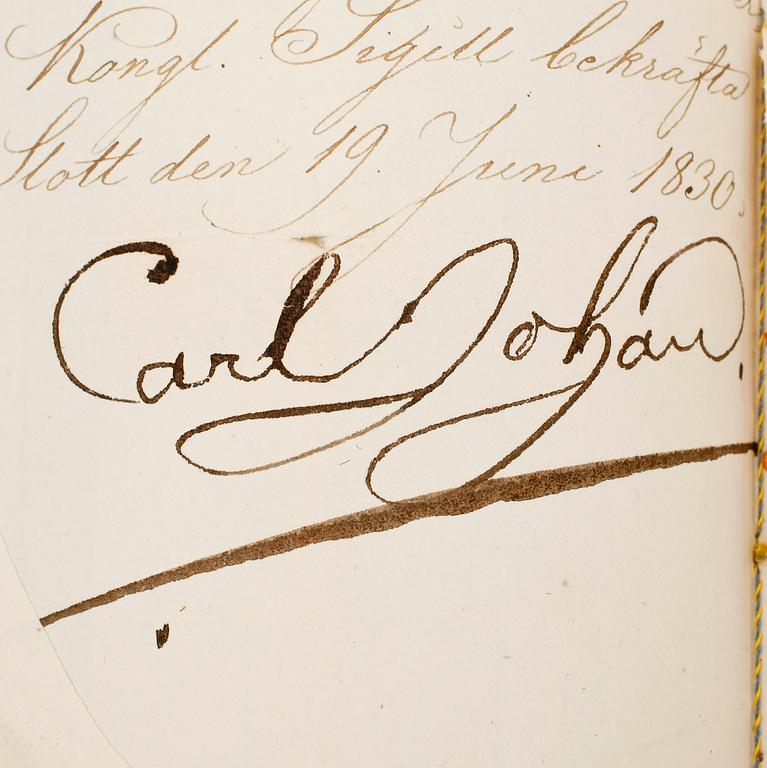 Kongl. Sigill bekräfta
Slott den 19 Juni 1830.
Carl Johan.